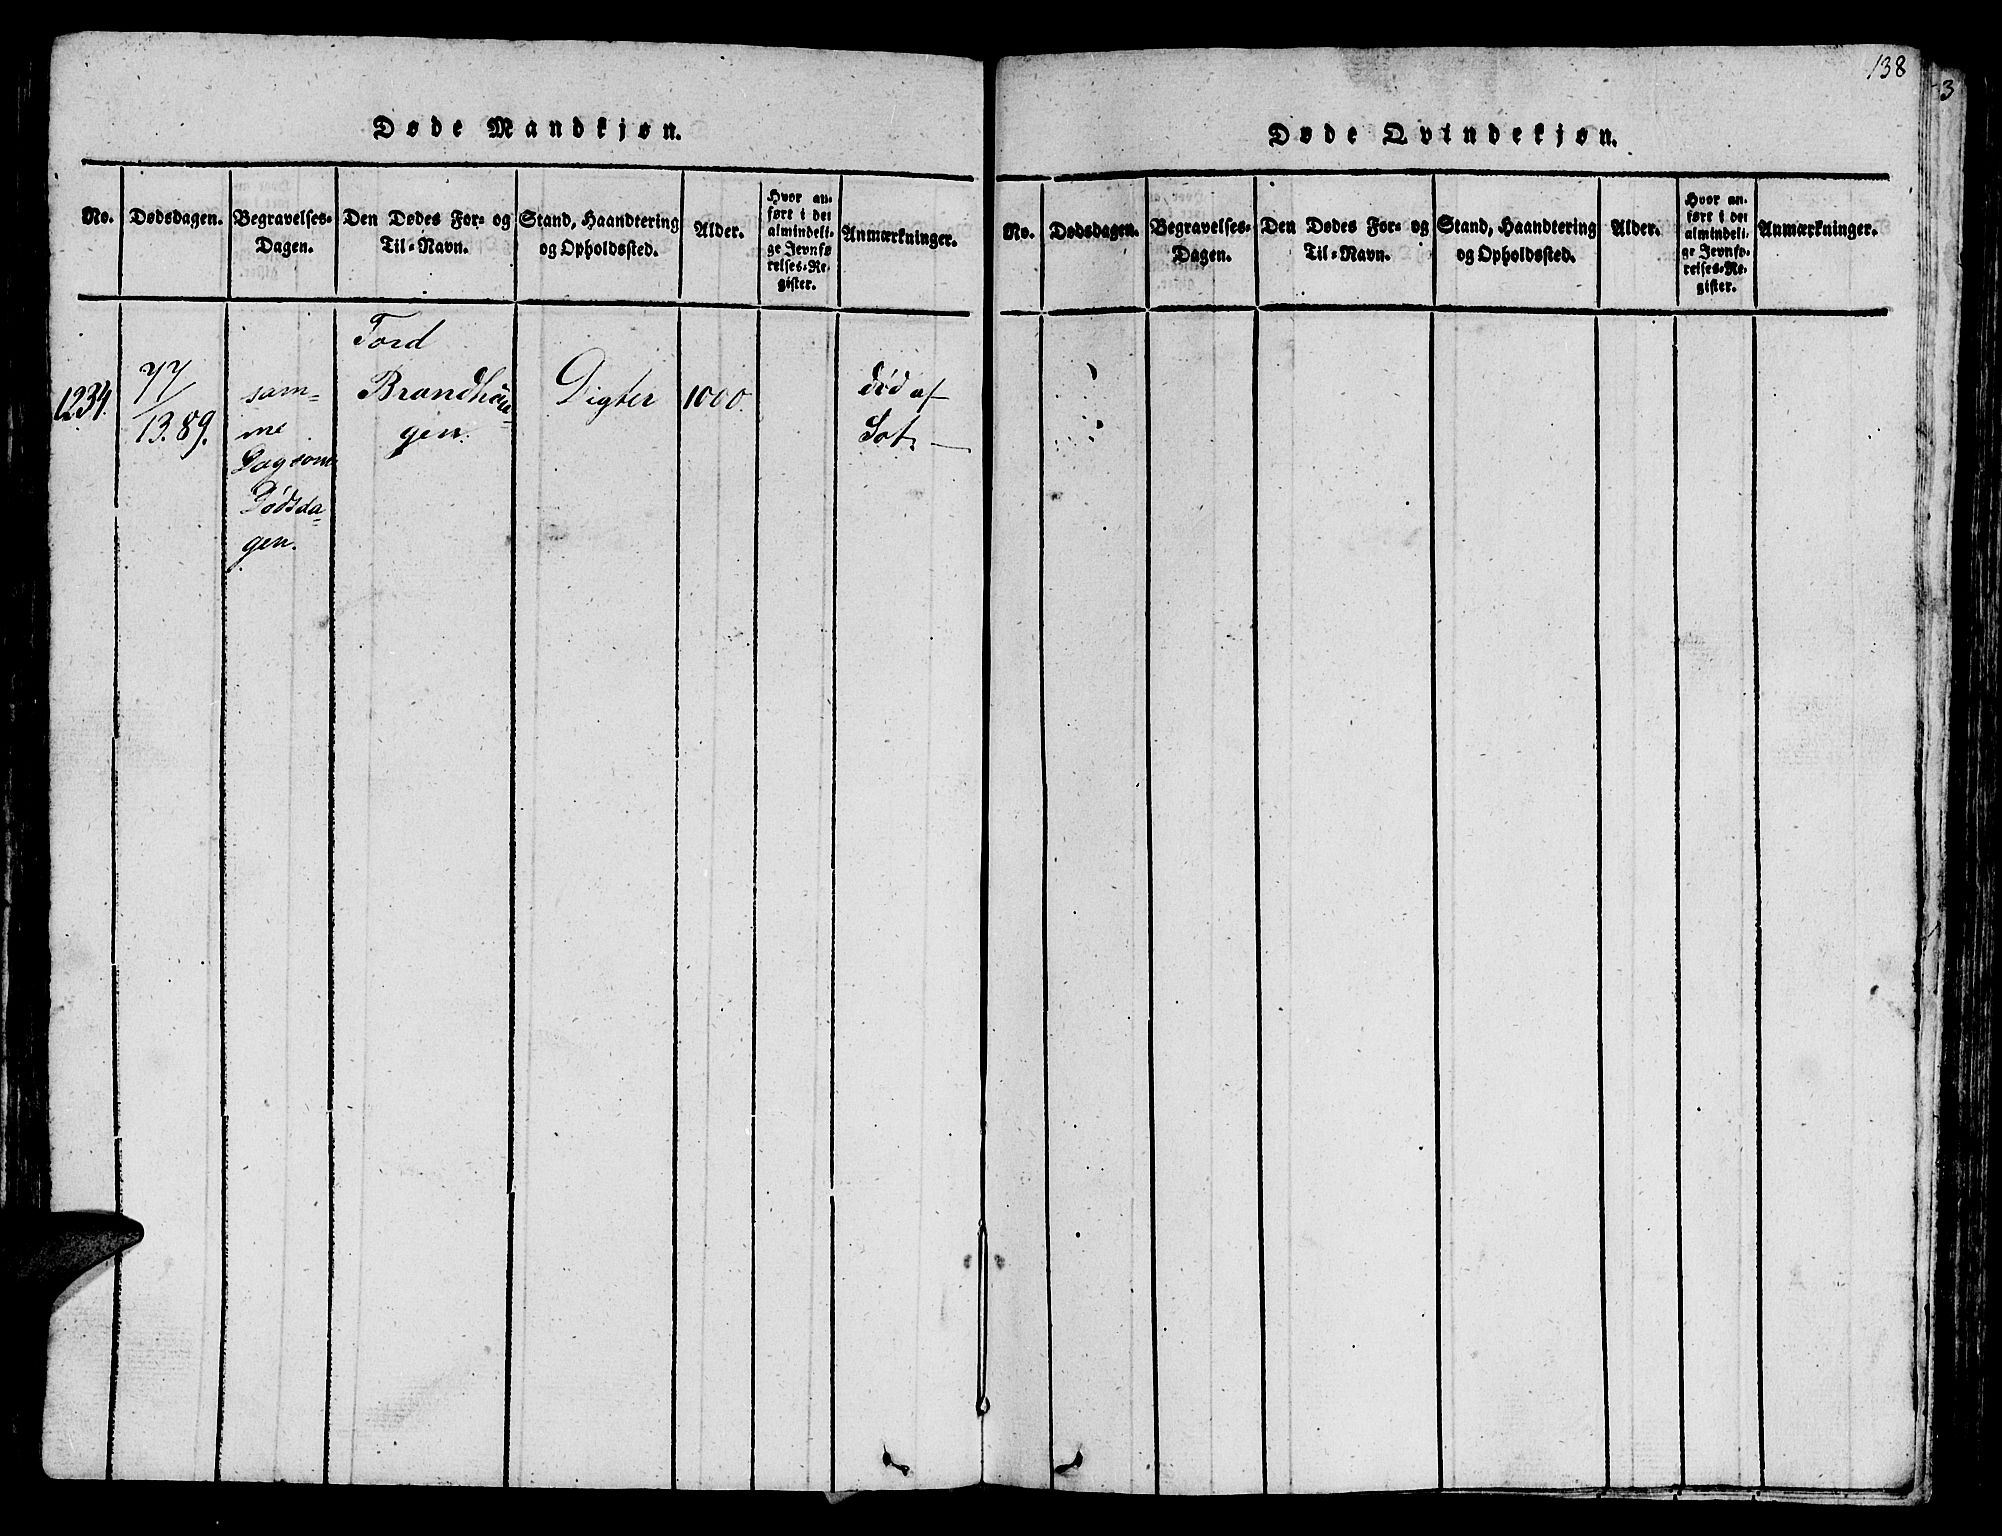 138
3
Døde Mandkjøn.
No.
Dødsdagen.
Begravelses-
Dagen.
Den Dødes For- og
Til-Navn.
Stand, Haandtering
og Opholdssted.
Alder.
Hvor an-
ført i det
almindeli-
ge Jevnfø
relses-Re-
gister.
Anmærkninger.
1234.
77/
13.89.
sam-
me
Dag som
Dødsda-
gen.
Tord
Brandhau-
gen.
Digter
1000.
død af
Sot.
Døde Qvindekjøn.
No.
Dødsdagen.
Begravelses-
Dagen.
Den Dødes For- og
Til-Navn.
Stand, Haandtering
og Opholdssted.
Alder.
Hvor an-
ført i det
almindeli-
ge Jevnfø-
relses-Re-
gister.
Anmærkninger.